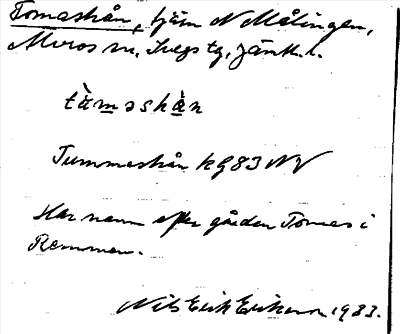 Tomashån, tjärn N Målingen,
Myros sn, Svegs tg, Jämtl. l.
tàmashàn
Tummashån kg83 NV
Har namn efter gården Tomas i
Remmen.
Nils Erik Eriksson 1983.